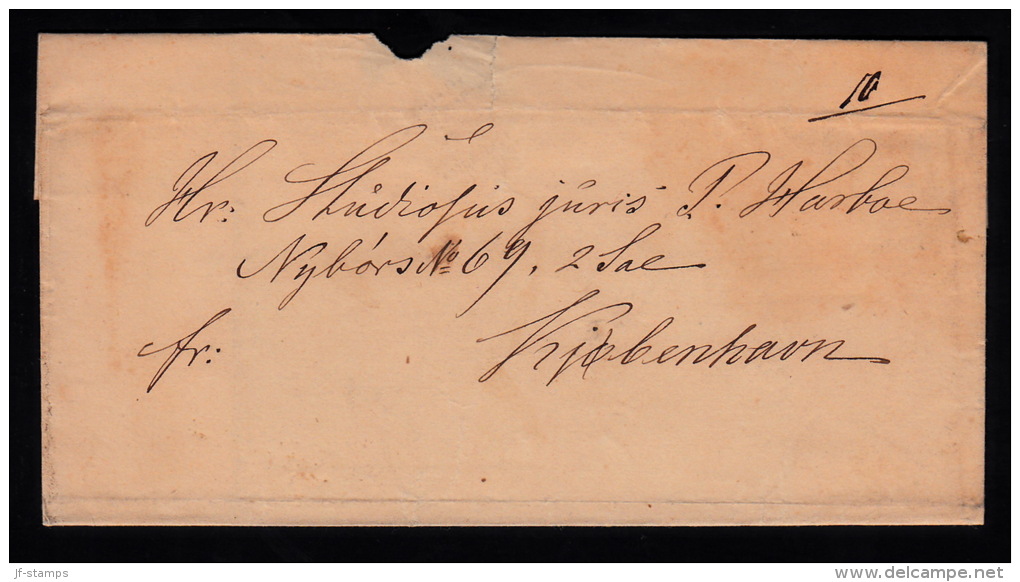 10
Hr: Studiosus juris P. Harboe
Nybörs No 69, 2 Sal
fr: Kjøbenhavn
jf-stamps
delcampe.net